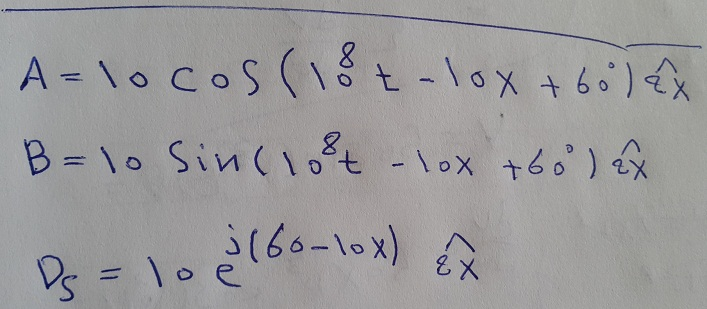 A = 10 cos(10⁸t - 10x + 60°) âx
B = 10 Sin(10⁸t - 10x + 60°) âx
Ds = 10 e^j(60-10x) âx